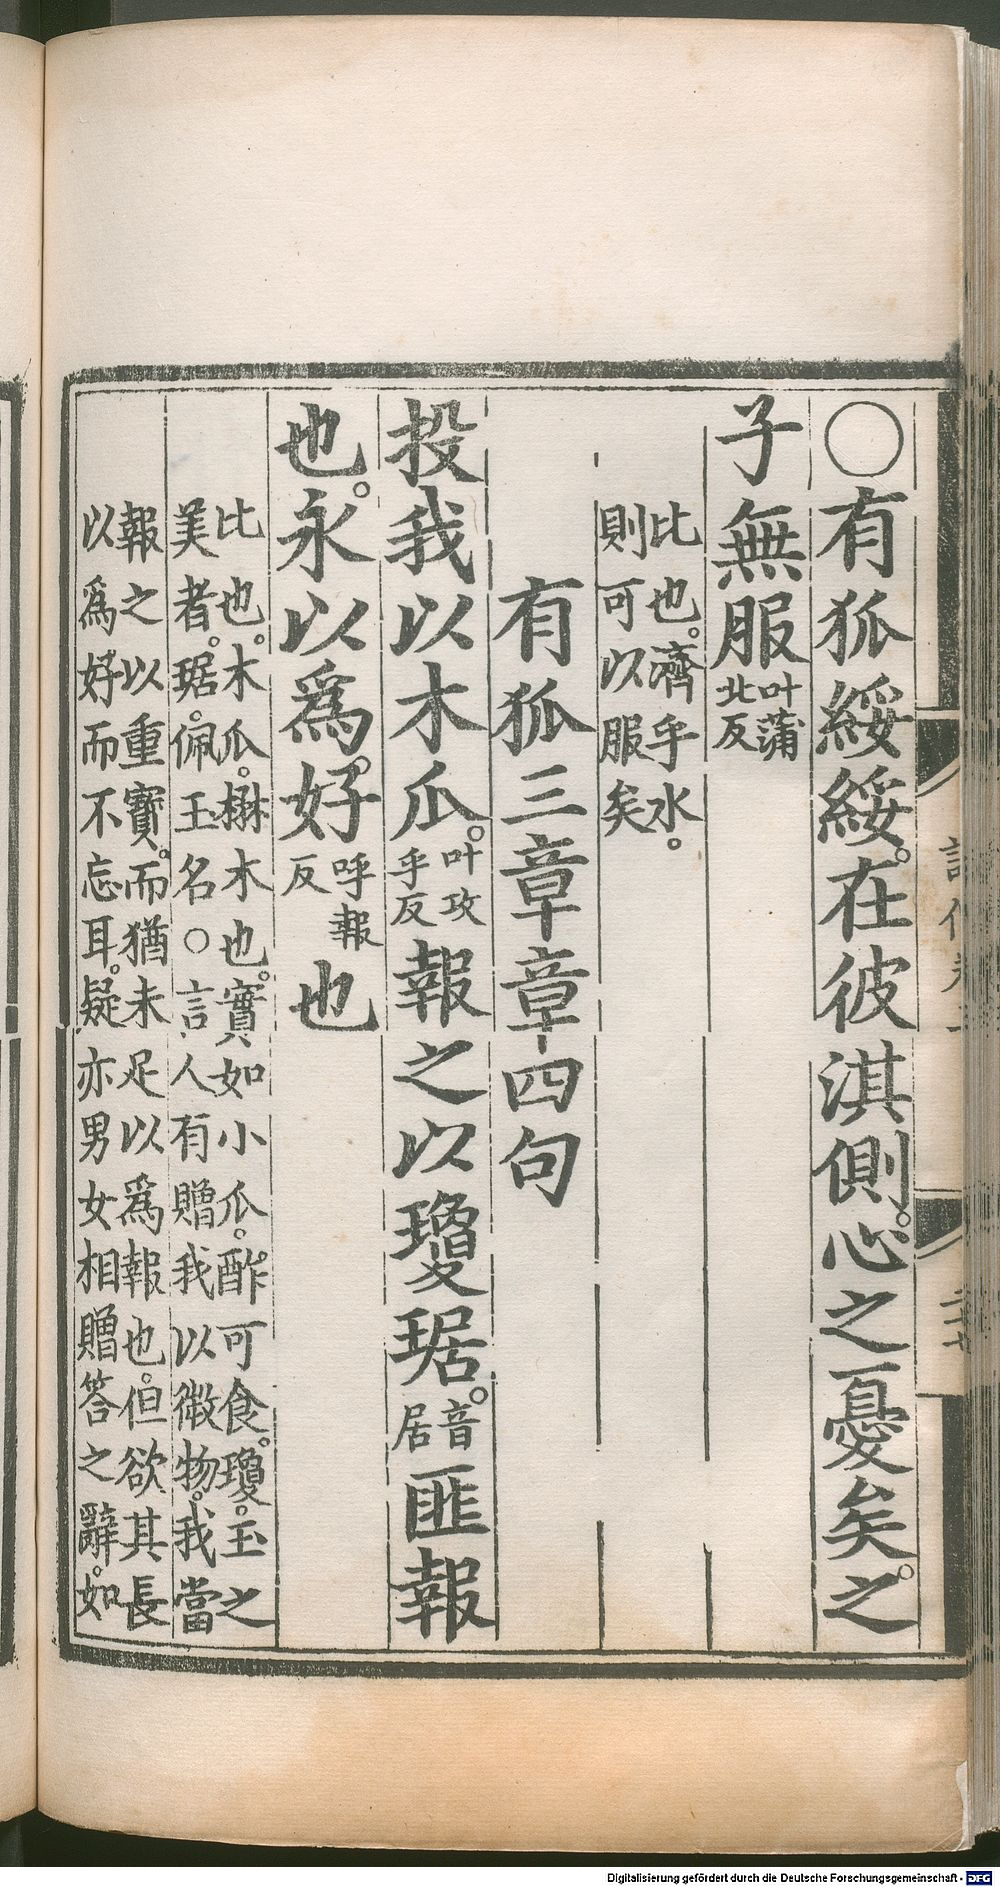 ○有狐綏綏。在彼淇側。心之憂矣。之
子無服叶蒲北反
比也。濟乎水。則可以服矣
有狐三章章四句
投我以木瓜。叶攻乎反報之以瓊琚。音居匪報
也。永以為。好呼報反也
比也。木瓜。楙木也。實如小瓜。酢可食。瓊。玉之
美者。琚。佩玉名○言人有贈我以微物。我當
報之以重寶。而猶未足以為報也。但欲其長
以為好而不忘耳。疑亦男女相贈答之辭。如
Digitalisierung gefördert durch die Deutsche Forschungsgemeinschaft - DFG